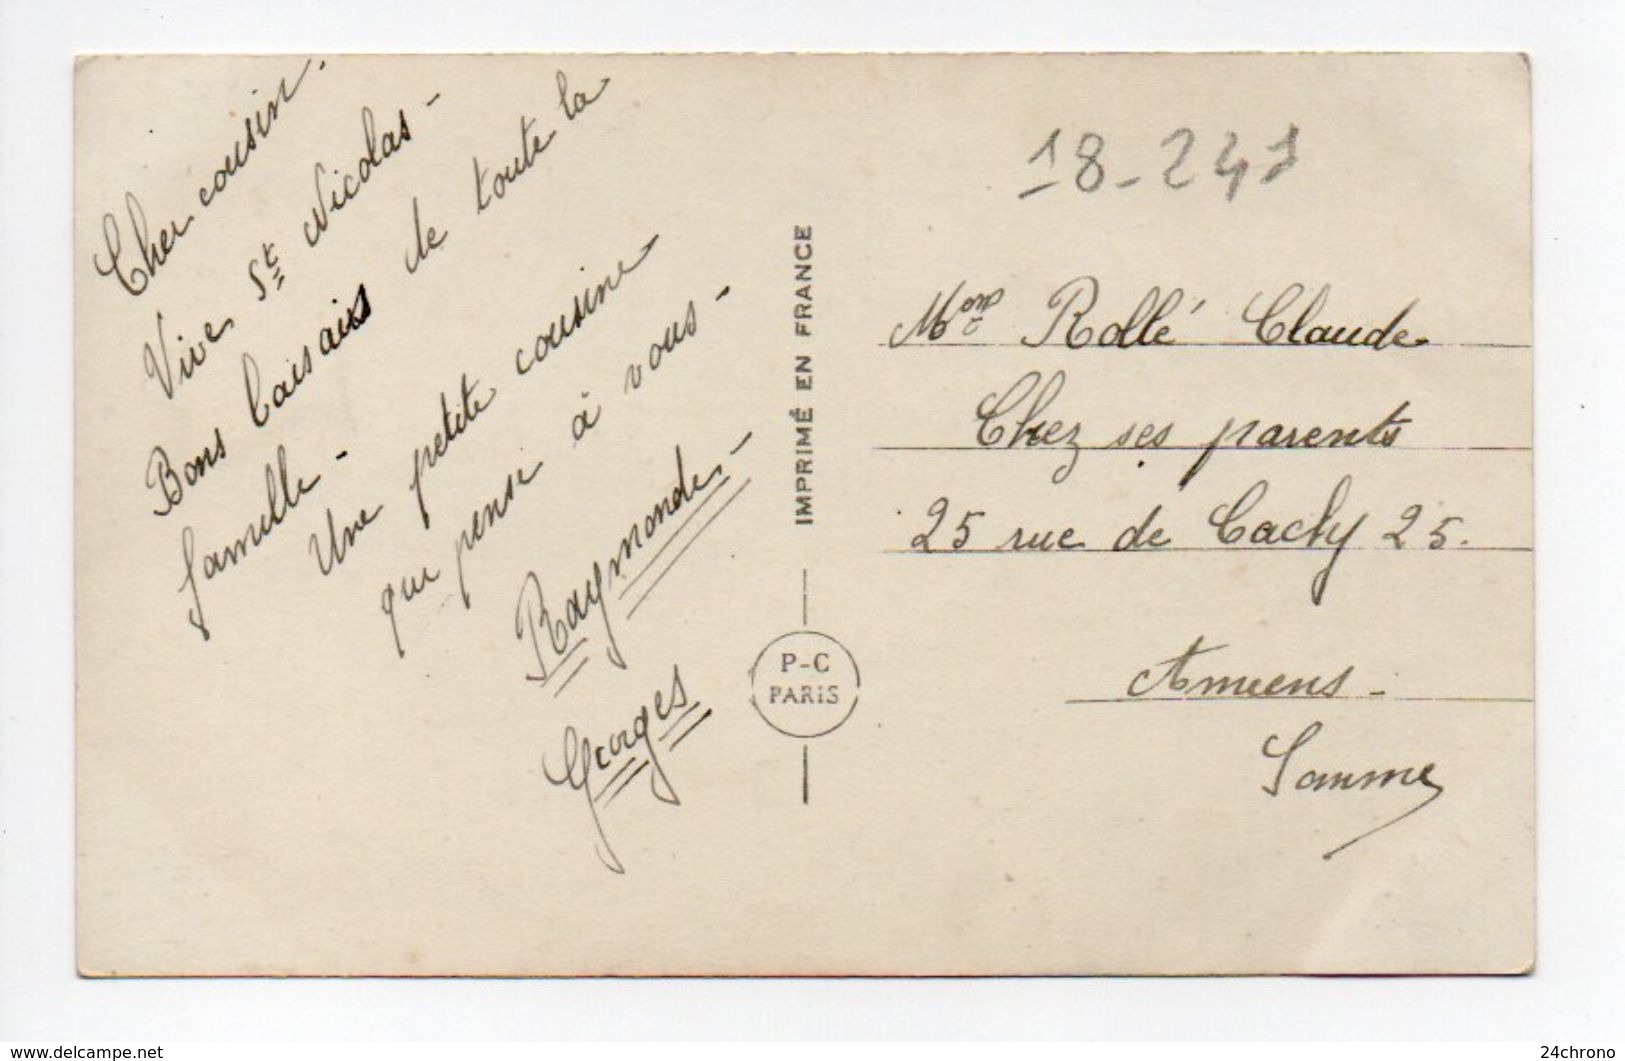 Cher cousin.
Vive St Nicolas -
Bons baisais de toute la
famille -
Une petite cousine
qui pense à vous -
Raymonde -
Georges
IMPRIMÉ EN FRANCE
P-C
PARIS
18-247
Rollé Claude
Chez ses parents
25 rue de Cachy 25.
Amiens -
Somme
www.delcampe.net
24chrono